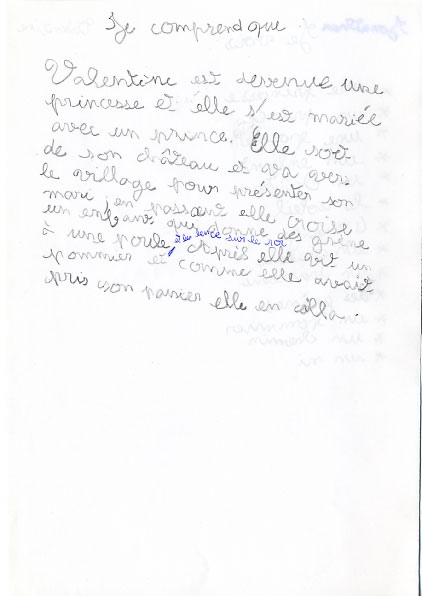 Je comprend que
Valentine est devenue une
princesse et elle s'est mariée
avec un prince. Elle sort
de son château et va vers
le village pour présenter son
mari, en passant elle croise
un enfant qui donne des graine
à une poule, il les lence sur le sol
Après elle voit un
pommier et comme elle avait
pris son panier elle en